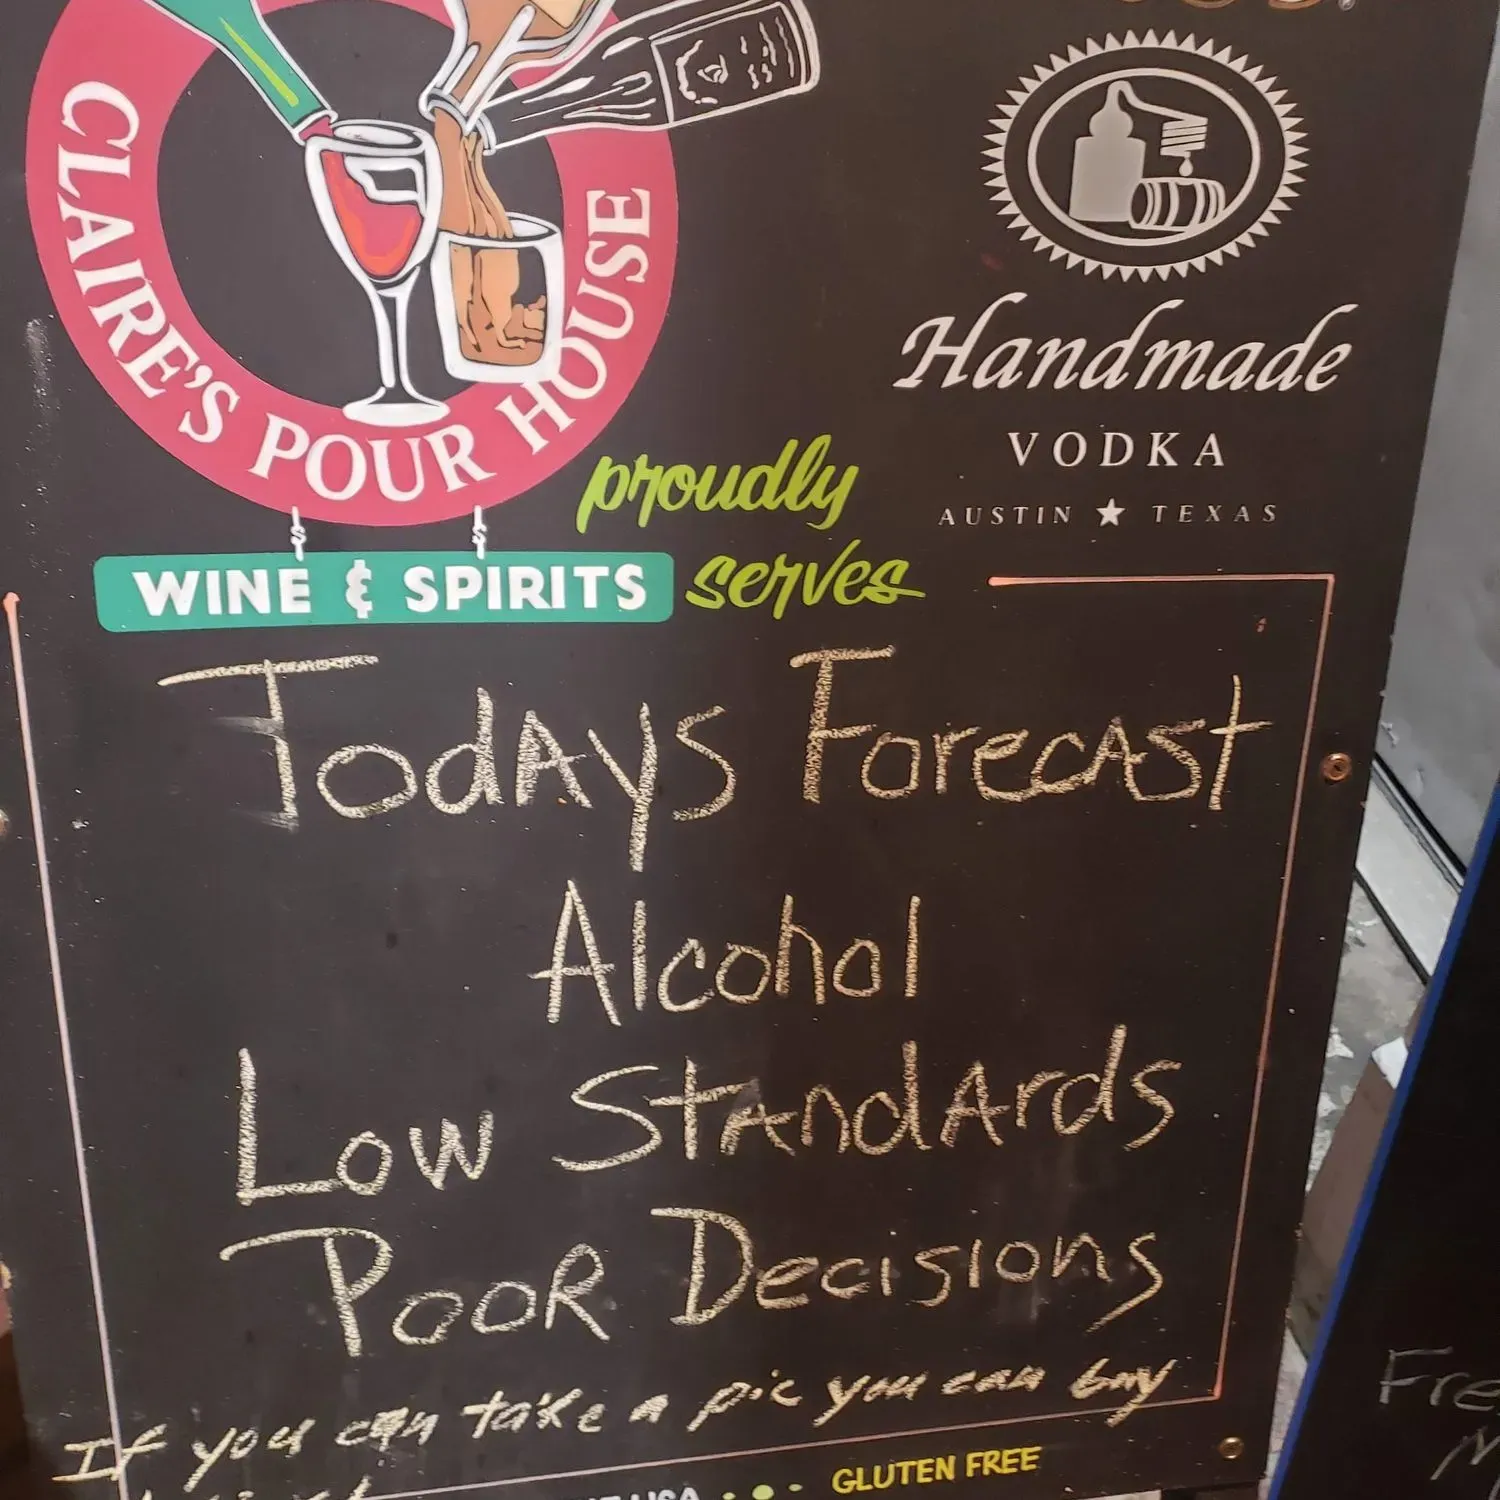 CLAIRE'S POUR HOUSE
WINE & SPIRITS
proudly
serves
Handmade
VODKA
AUSTIN ★ TEXAS
Todays Forecast
Alcohol
Low Standards
Poor Decisions
If you can take a pic you can buy
USA
GLUTEN FREE